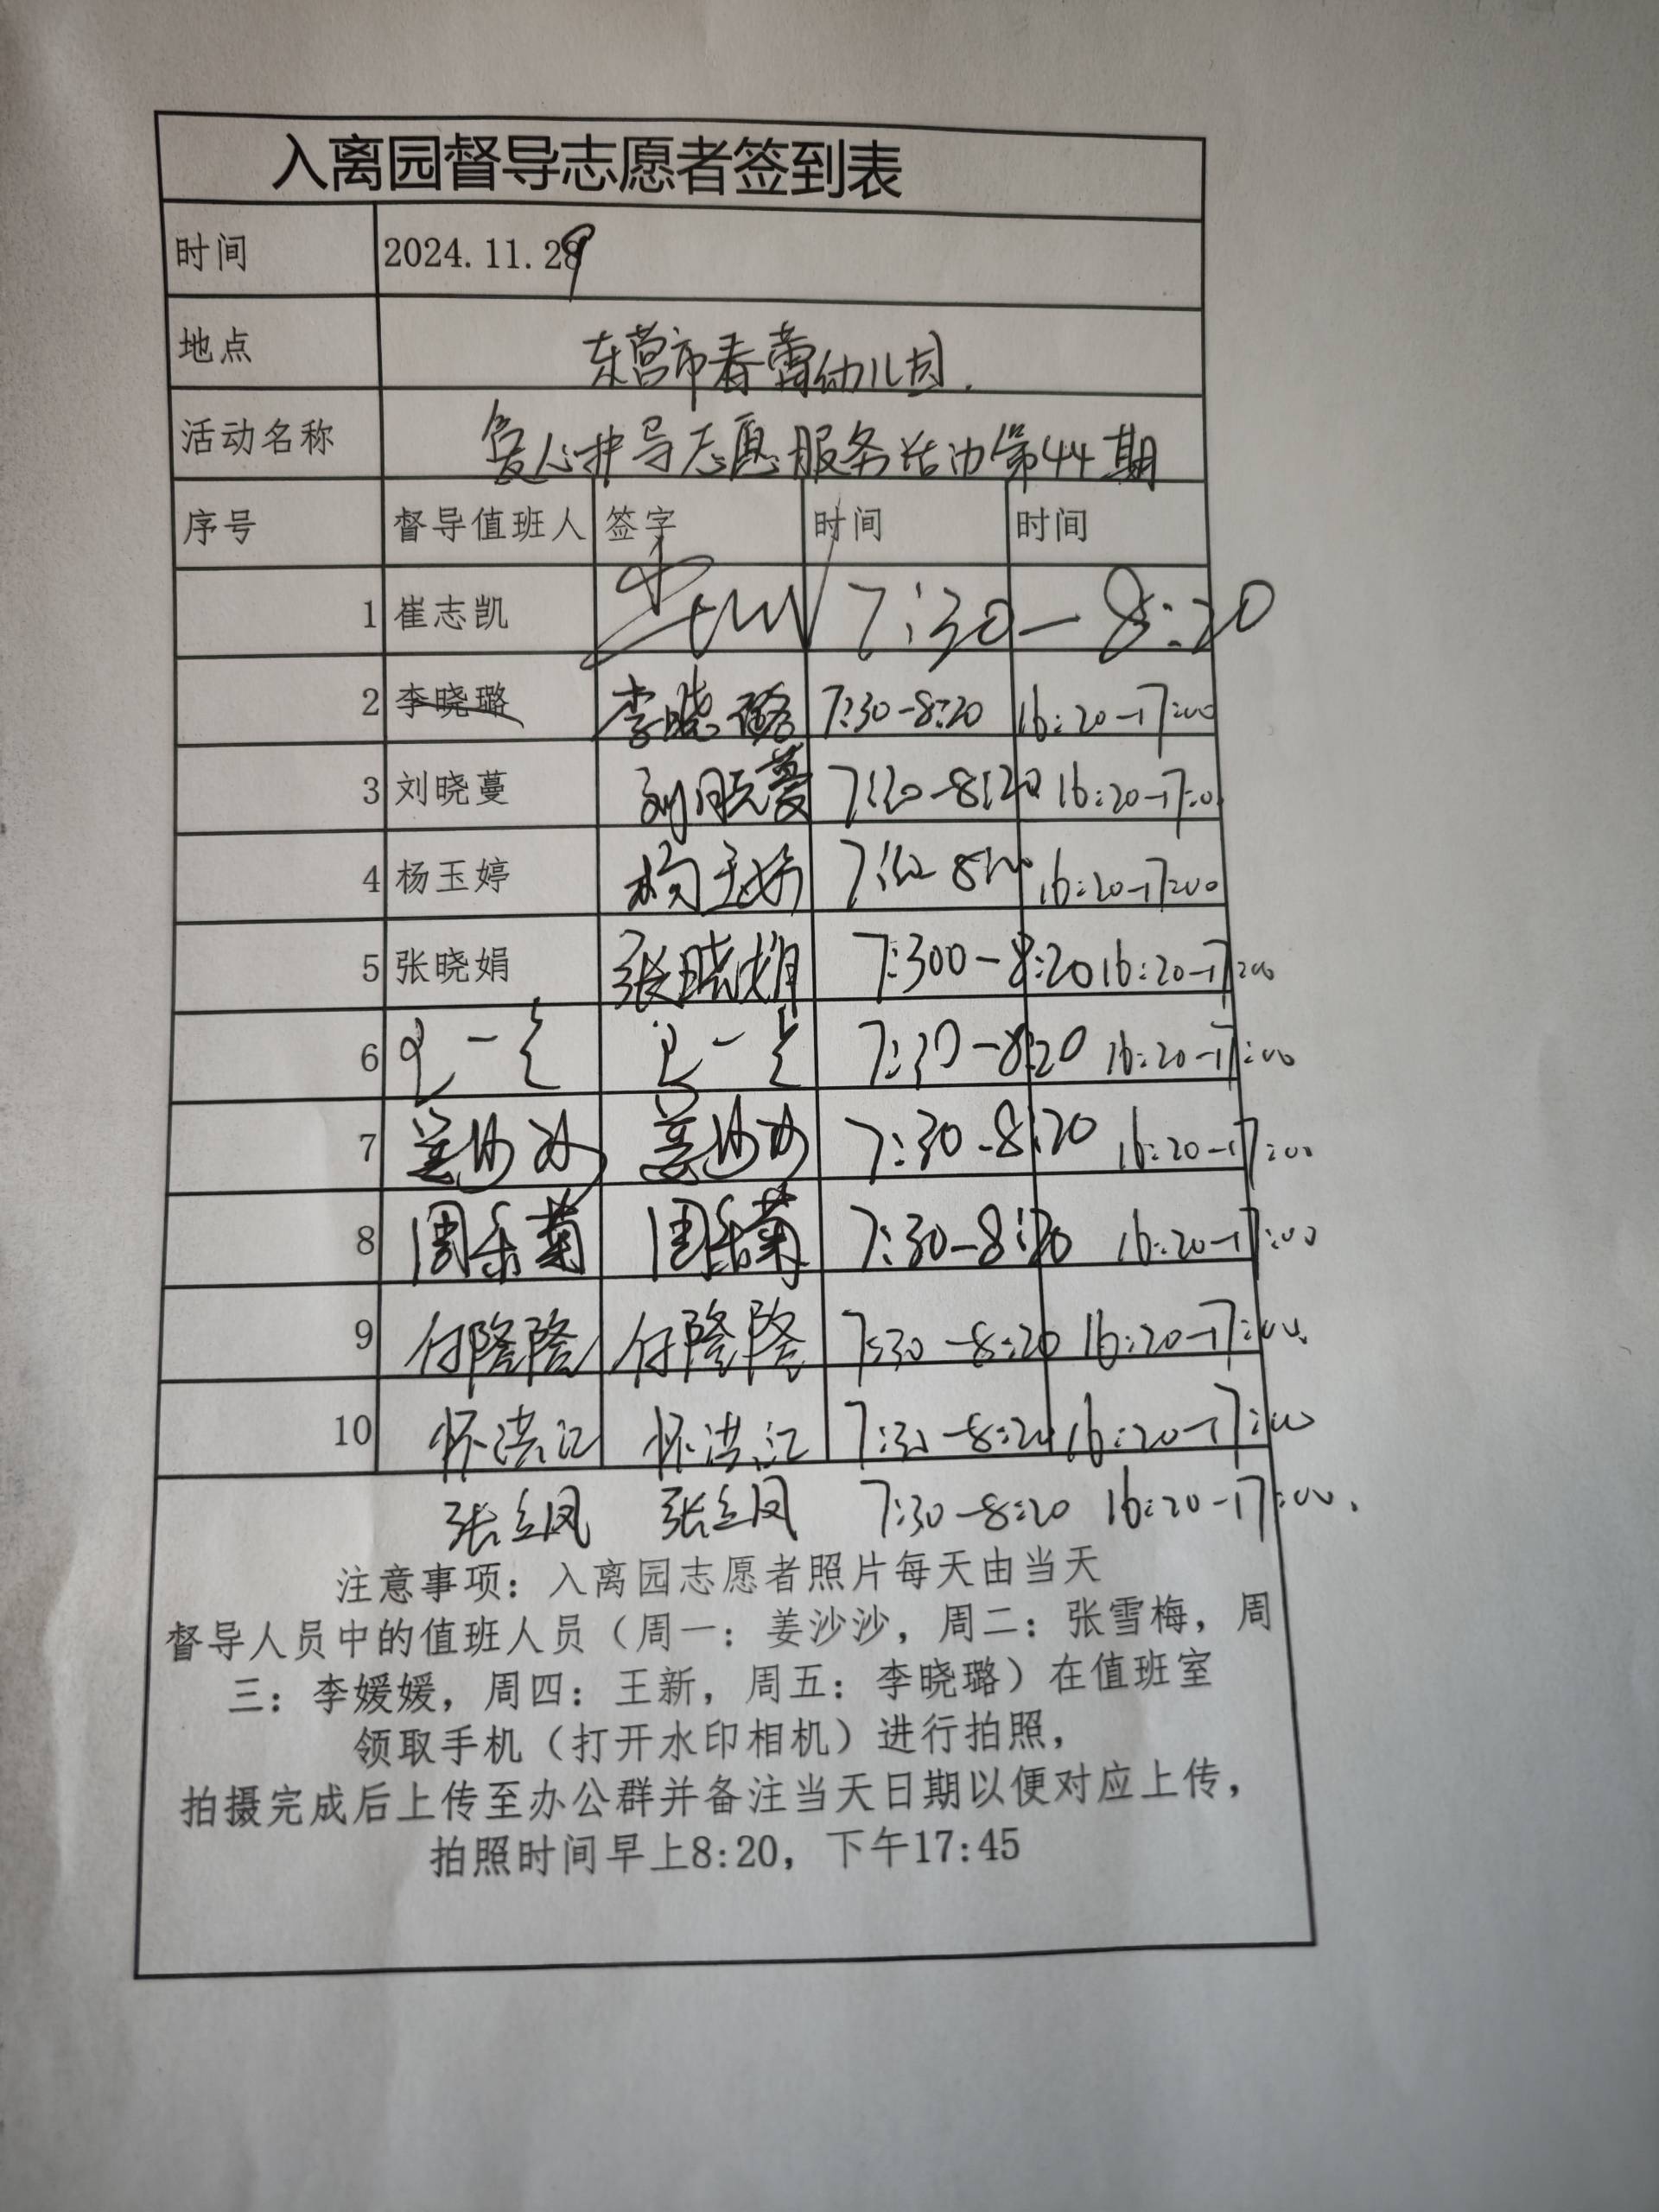 入离园督导志愿者签到表
时间 2024.11.29
地点 东营市春蕾幼儿园.
活动名称 爱心护导志愿服务活动第44期
序号 督导值班人 签字 时间 时间
1 崔志凯 7:30-8:20
2 李晓璐 李晓璐 7:30-8:20 16:20-17:00
3 刘晓蔓 刘晓蔓 7:30-8:20 16:20-17:00
4 杨玉婷 杨玉婷 16:20-17:00
5 张晓娟 张晓娟 7:300-8:20 16:20-17:00
6 7:30-8:20 16:20-17:00
7 姜沙沙 姜沙沙 7:30-8:20 16:20-17:00
8 周乐菊 周乐菊 7:30-8:20 16:20-17:00
9 付隆隆 付隆隆 7:30-8:20 16:20-17:00.
10 怀洪江 怀洪江 7:30-8:20 16:20-17:00
张立凤 张立凤 7:30-8:20 16:20-17:00.
注意事项：入离园志愿者照片每天由当天
督导人员中的值班人员（周一：姜沙沙，周二：张雪梅，周
三：李媛媛，周四：王新，周五：李晓璐）在值班室
领取手机（打开水印相机）进行拍照，
拍摄完成后上传至办公群并备注当天日期以便对应上传，
拍照时间早上8:20，下午17:45